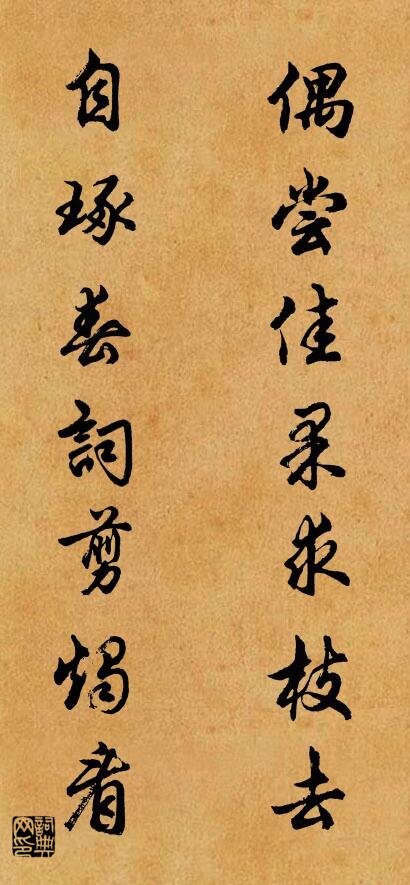 偶尝佳果求枝去
自琢春詞剪燭看
詞典网印